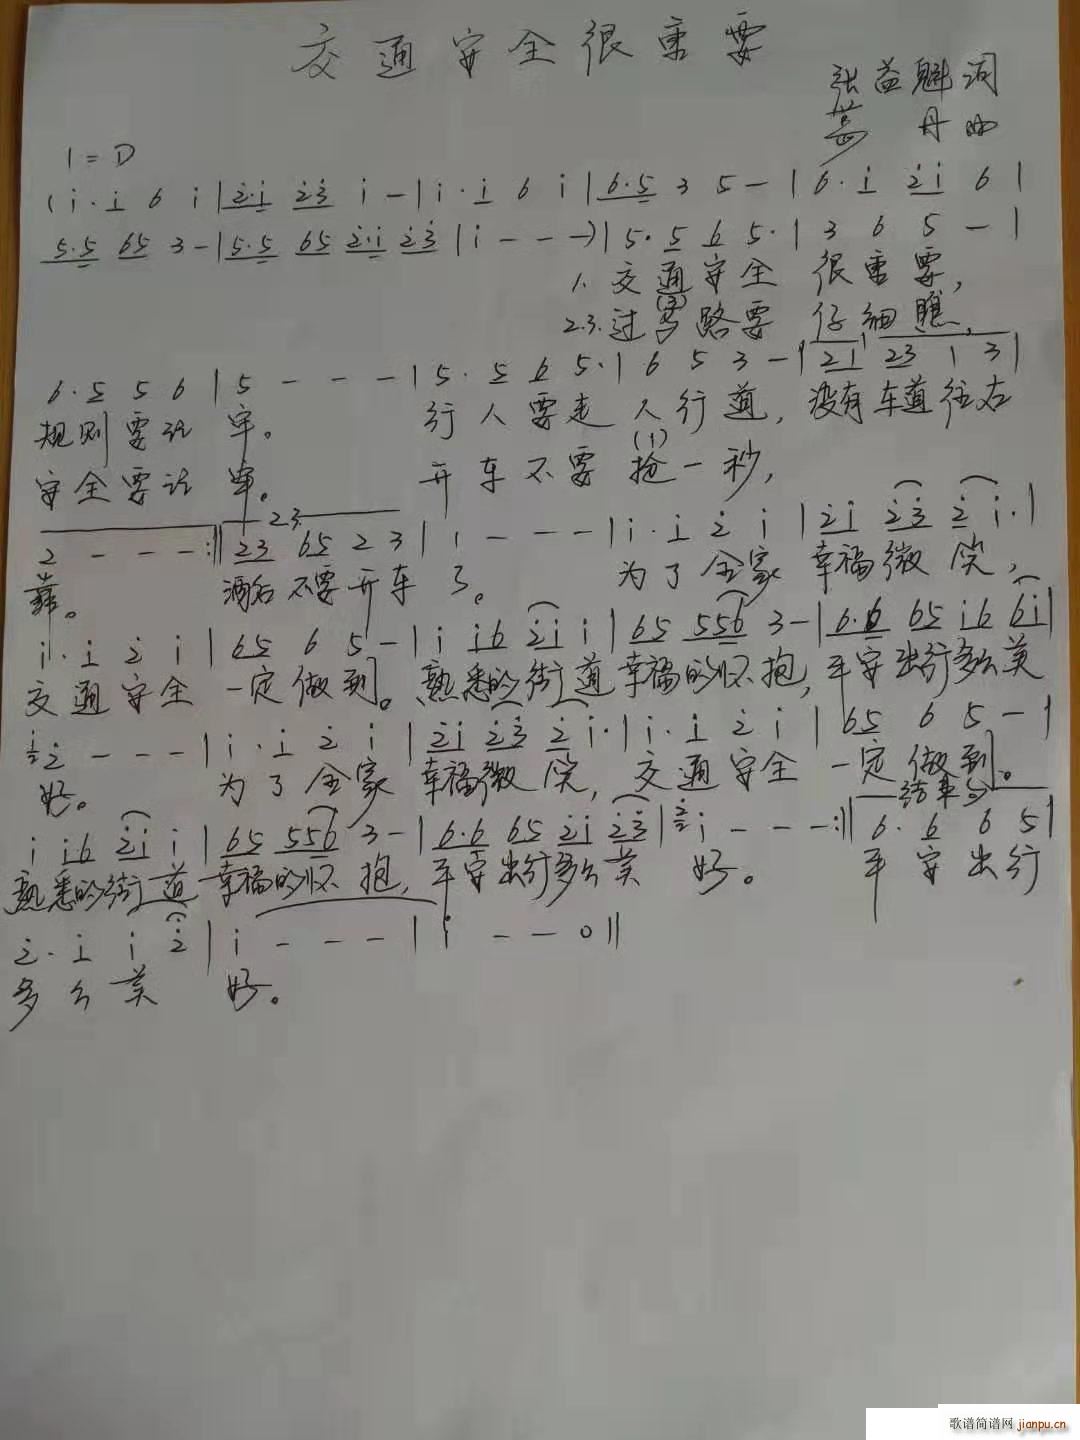 交通安全很重要
张益魁词
丹曲
1=D
(i·i 6 i|2·i 23 i -|i·i 6 i|6·5 3 5 -|6·i 2i 6|
5·5 65 3 -|5·5 65 2·i 23|i - - -)|5·5 6 5·|3 6 5 -|
1.交通安全 很重要,
(3)
2.3.过马路要 仔细瞧,
6·5 5 6|5 - - -|5·5 6 5·|6 5 3 -|21 23 1 3|
规则要记牢。 行人要走人行道,没有车道往右
(1)
安全要记牢。 开车不要抢一秒,
2.3.
2 - - -:||23 65 2 3|1 - - -|i·i 2 i|2i 23 2 i·|
靠。 酒后不要开车了。 为了全家幸福微笑,
i·i 2 i|65 6 5 -|i i6 2i i|65 556 3 -|6·6 65 i6 6i|
交通安全一定做到。熟悉的街道幸福的怀抱,平安出行多么美
2 - - -|i·i 2 i|2i 23 2 i·|i·i 2 i|65 6 5 -|
好。 为了全家幸福微笑,交通安全一定做到。
结束句
i i6 2i i|65 556 3 -|6·6 65 2i 23|i - - -:||6·6 6 5|
熟悉的街道幸福的怀抱,平安出行多么美 好。 平安出行
2·i i 2|i - - -|i - - 0||
多么美 好。
歌谱简谱网 jianpu.cn